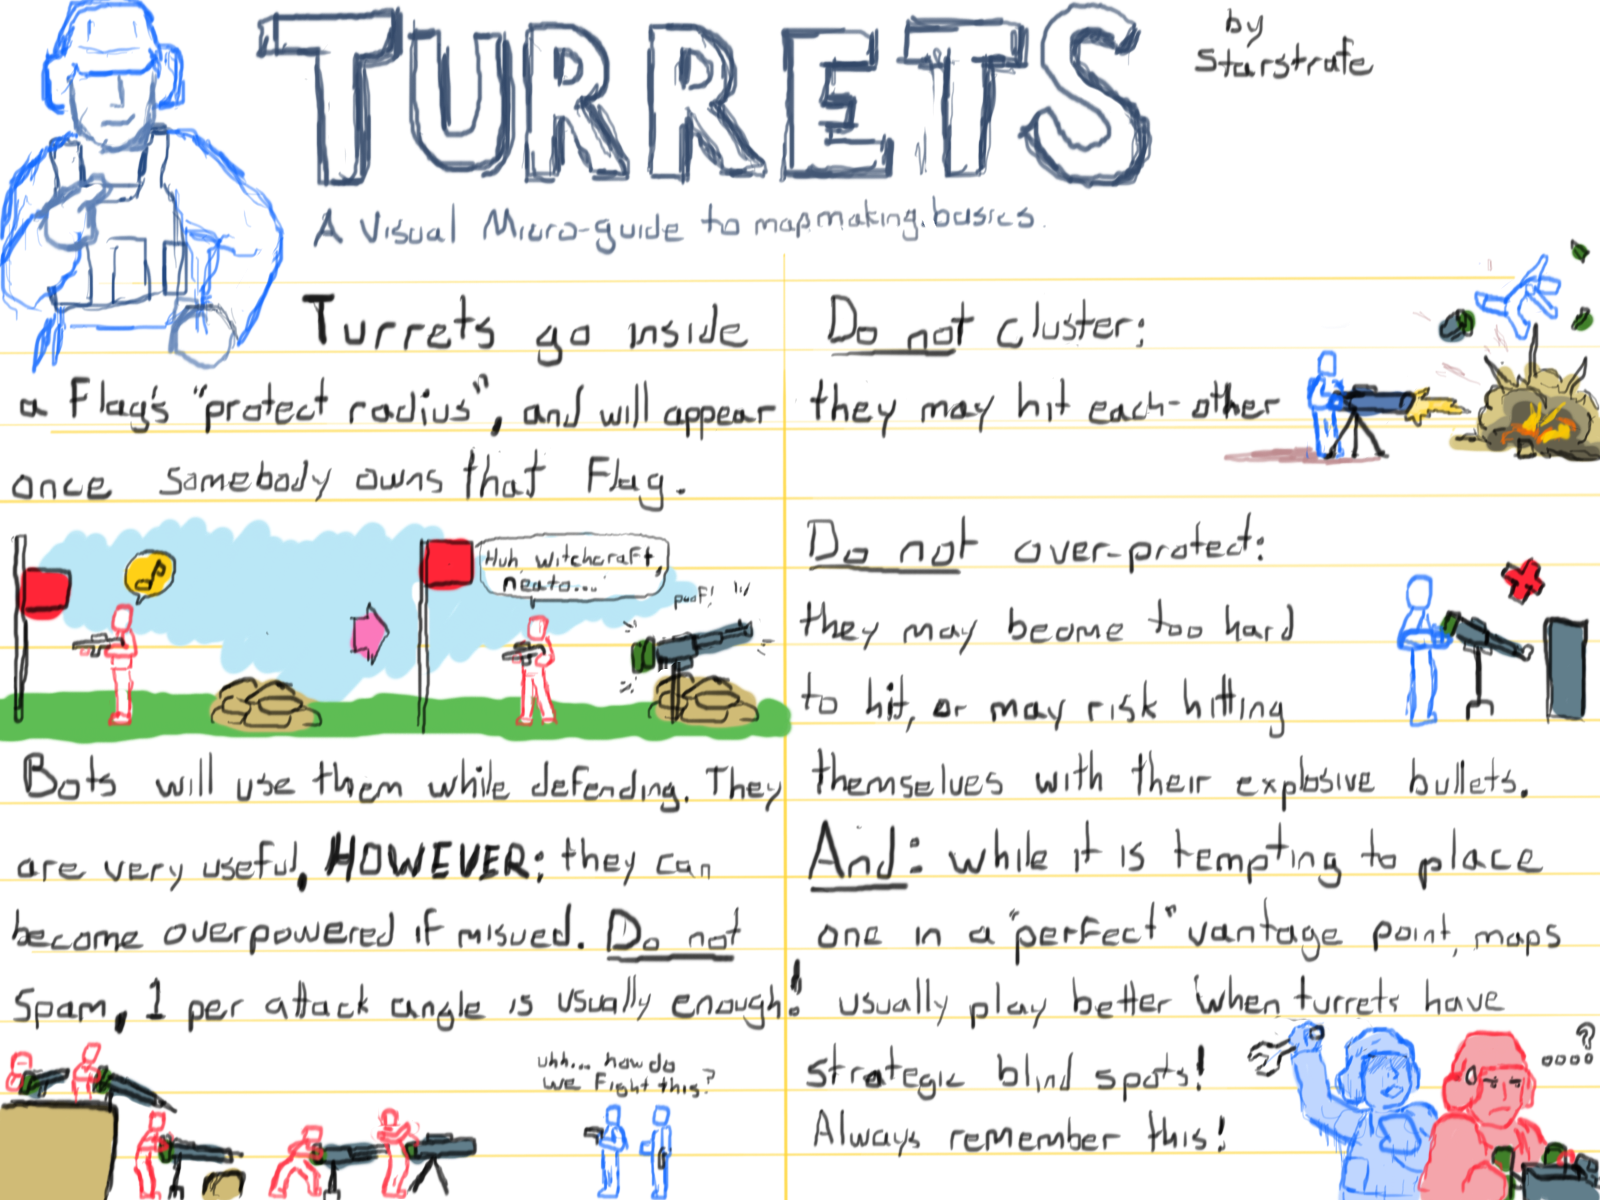 TURRETS
by
Starstrafe
A Visual Micro-guide to mapmaking basics.
Turrets go inside
a Flag's "protect radius", and will appear
once somebody owns that Flag.
Huh, witchcraft,
neato...
poof!
Bots will use them while defending. They
are very useful, HOWEVER: they can
become overpowered if misued. Do not
spam, 1 per attack angle is usually enough!
uhh... how do
we fight this?
Do not cluster:
they may hit each-other
Do not over-protect:
they may beome too hard
to hit, or may risk hitting
themselves with their explosive bullets.
And: while it is tempting to place
one in a "perfect" vantage point, maps
usually play better when turrets have
strategic blind spots!
Always remember this!
....?